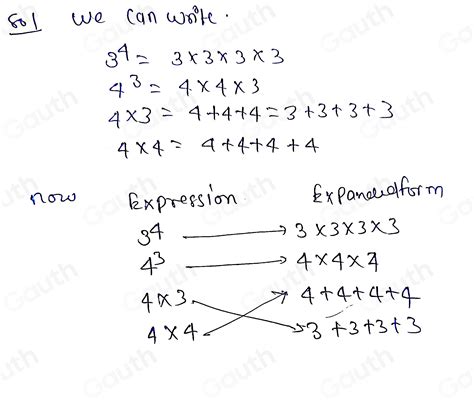 Sol we can write.
3⁴ = 3×3×3×3
4³ = 4×4×3
4×3 = 4+4+4 = 3+3+3+3
4×4 = 4+4+4+4
now Expression Expanded form
3⁴ → 3×3×3×3
4³ → 4×4×4
4×3 4+4+4+4
4×4 3+3+3+3